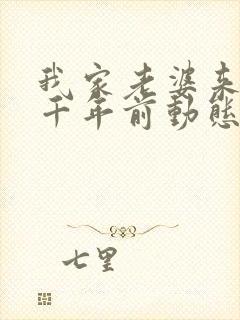 我家老婆来
千年前動態
七里